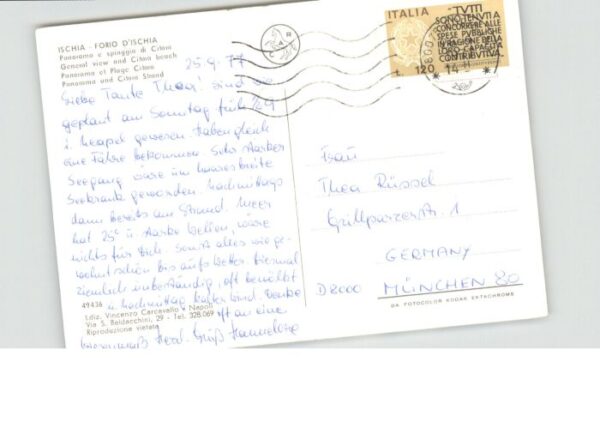 ISCHIA - FORIO D'ISCHIA
Panorama e spiaggia di Citara
General view and Citara beach
Panorama et Plage Citara
Panorama und Citara Strand
25.9.77
Liebe Tante Thea! sind wie
geplant am Sonntag früh
i. Neapel gewesen. Haben gleich
eine Fähre bekommen. Sehr starker
Seegang, wäre im
Seekrank geworden. Nachmittags
dann bereits am Strand. Meer
hat 25° u. starke Wellen, wäre
nichts für Dich. Sonst alles wie ge-
wohnt schön bis aufs Wetter. Diesmal
ziemlich unbeständig, oft bewölkt
u. nachmittag kalter Wind. Denke
oft an eine
Herzl. Grüß Hannelore
49436
Ediz. Vincenzo Carcavallo - Napoli
Via S. Baldacchini, 29 - Tel. 328.069
Riproduzione vietata
ITALIA
"TUTTI
SONO TENUTI A
CONCORRERE ALLE
SPESE PUBBLICHE
IN RAGIONE DELLA
LORO CAPACITÀ
CONTRIBUTIVA"
120
Frau
Thea Rüssel
Grillparzerstr. 1
GERMANY
D8000 MÜNCHEN 80
DA FOTOCOLOR KODAK EKTACHROME